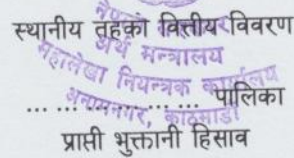 स्थानीय तहको वित्तीय विवरण
नेपाल सरकार
अर्थ मन्त्रालय
महालेखा नियन्त्रक कार्यालय
अनामनगर, काठमाडौं
... ... ... ... ... ... ... पालिका
प्राप्ती भुक्तानी हिसाव